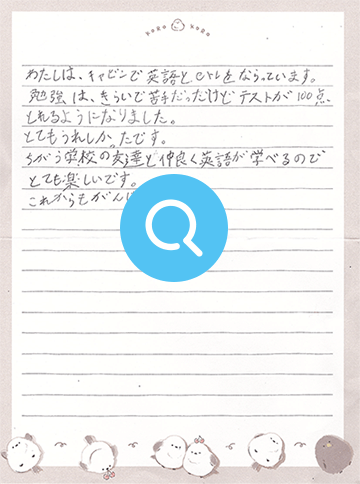 わたしは、キャビンで英語と をならっています。
勉強は、きらいで苦手だっだけどテストが100点
とれるようになりました。
とてもうれしかったです。
ちがう学校の友達と仲良く英語が学べるので
とても楽しいです。
これからもがん